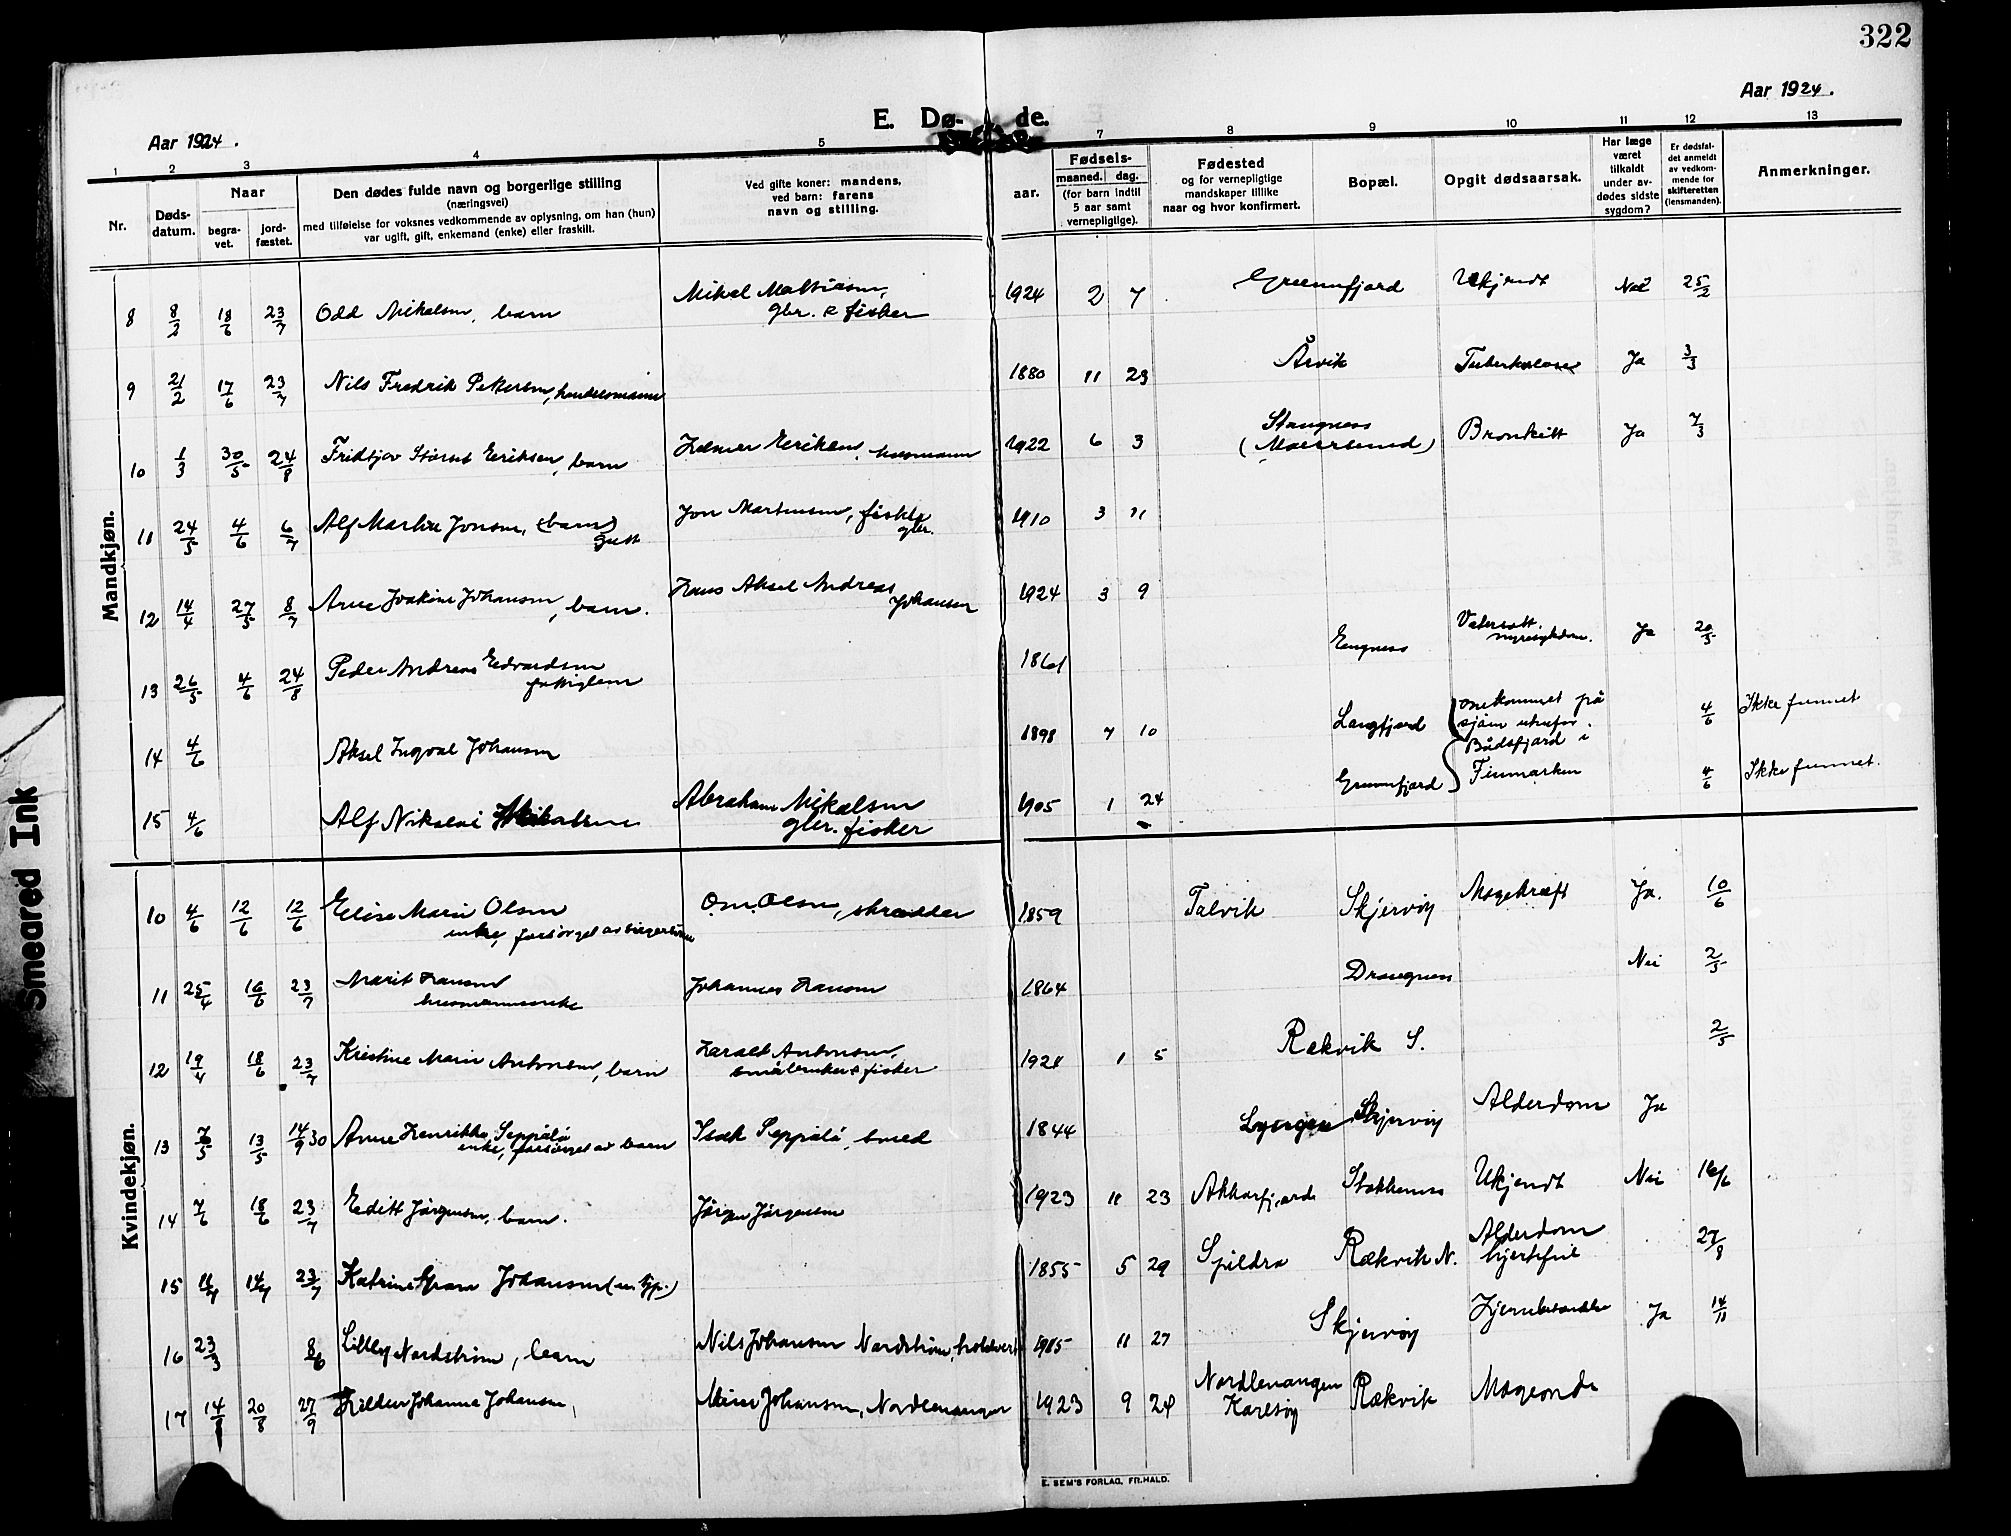 322
Aar 1924.
Aar 1924.
E. Dø- de.
1 2 3 4 5 7 8 9 10 11 12 13
Nr.
Døds-datum.
Naar
begra-vet.
jord-fæstet.
Den dødes fulde navn og borgerlige stilling
(næringsvei)
med tilføielse for voksnes vedkommende av oplysning, om han (hun)
var ugift, gift, enkemand (enke) eller fraskilt.
Ved gifte koner: mandens,
ved barn: farens
navn og stilling.
aar.
Fødsels-
maaned. dag.
(for barn indtil
5 aar samt
vernepligtige).
Fødested
og for vernepligtige
mandskaper tillike
naar og hvor konfirmert.
Bopæl.
Opgit dødsaarsak.
Har læge
været
tilkaldt
under av-
dødes sidste
sygdom?
Er dødsfal-
det anmeldt
av vedkom-
mende for
skifteretten
(lensmanden).
Anmerkninger.
Mandkjøn.
8 8/2 18/6 23/7 Odd Mikalsen, barn Mikal Mathiasen, gbr. & fisker 1924 2 7 Grunnfjord Ukjendt Nei 25/2
9 21/2 17/6 23/7 Nils Fredrik Petersen, handelsmann 1880 11 23 Årvik Tuberkulose Ja 3/3
10 1/3 30/5 24/8 Fridtjov Eriksen, barn Eriksen, husmann 1922 6 3 Stangness (Maursund) Bronkitt Ja 7/3
11 24/5 4/6 6/7 Alf Martin Jonsen, (barn) gutt Jon Martinsen, fisker gbr. 1910 3 11
12 14/4 27/5 8/7 Arne Joakim Johansen, barn. Hans Aksel Andreas Johansen 1924 3 9
13 26/5 4/6 24/8 Peder Andreas Edvardsen fattiglem 1861 Engness Vatersott. nyresykdom. Ja 20/5
14 4/6 Aksel Ingval Johansen 1898 7 10 Langfjord omkommet på sjøen utenfor Bådsfjord i 4/6 Ikke funnet
15 4/6 Alf Nikolai Mikalsen Abraham Mikalsen gbr. fisker 1905 1 24 Grunnfjord Finmarken 4/6 Ikke funnet.
Kvindekjøn.
10 4/6 12/6 12/6 Elise Marie Olsen enke, forsörget av Olsen, skredder 1859 Talvik Skjervöy Magekræft Ja. 10/6
11 25/4 16/6 23/7 Marit Hansen husmannsenke Johannes Hansen 1864 Drangness Nei 2/5
12 19/4 18/6 23/7 Kristine Marie Antonsen, barn Harald Antonsen, småbruker & fisker 1924 1 5 Rækvik S. 2/5
13 7/5 13/5 14/9 30 Anne Henrikke Seppälä enke, forsörget av barn Isak Seppälä, smed 1844 Lyngen Skjervöy Alderdom Ja
14 7/6 18/6 23/7 Editt Jörgensen, barn. Jörgen Jörgensen 1923 11 23 Akkarfjord Stakkenes Ukjendt Nei 16/6
15 14/7 23/7 Katrine Johansen 1855 5 29 Spildra Rækvik N. Alderdom hjertefeil 27/8
16 23/3 8/6 Lilly Nordström, barn Nils Johansen Nordström, 1915 11 27 Skjervöy Hjernebetendelse Ja 14/11
17 14/8 20/8 27/9 Hildur Johanna Johansen, Johansen, Nordlenangen 1923 9 24 Nordlenangen Karlsöy Rækvik Mageonde
E. SEM'S FORLAG, FR.HALD.
Smeared Ink